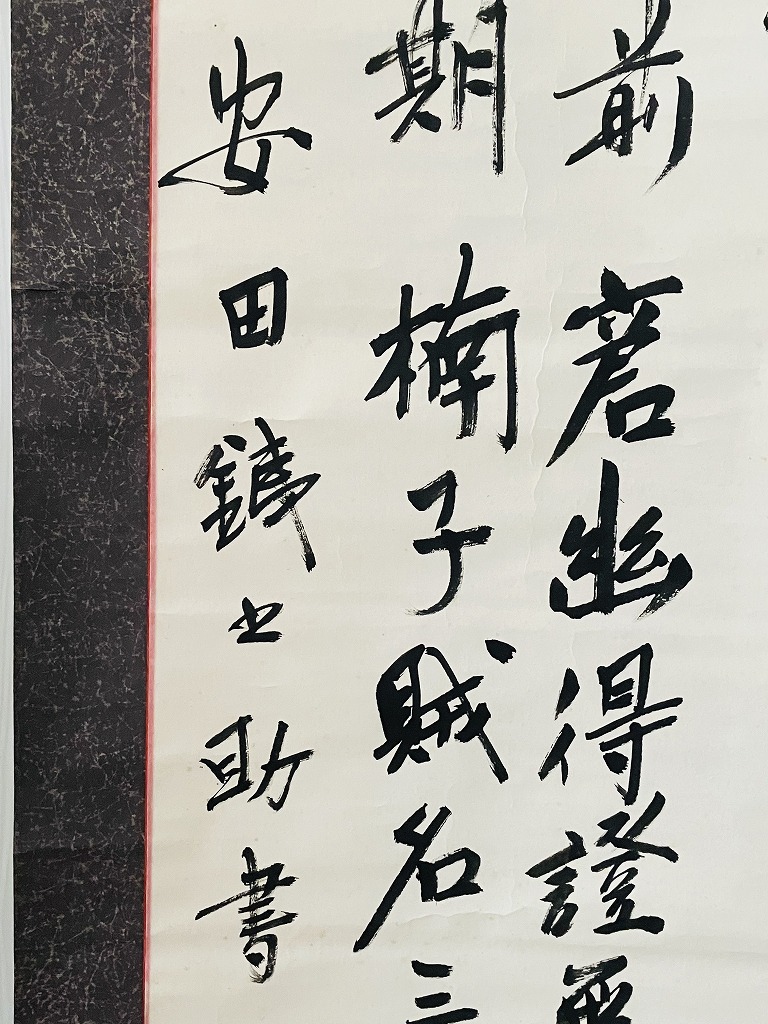 前窘幽得證無
期楠子賊名三
安田銕之助書